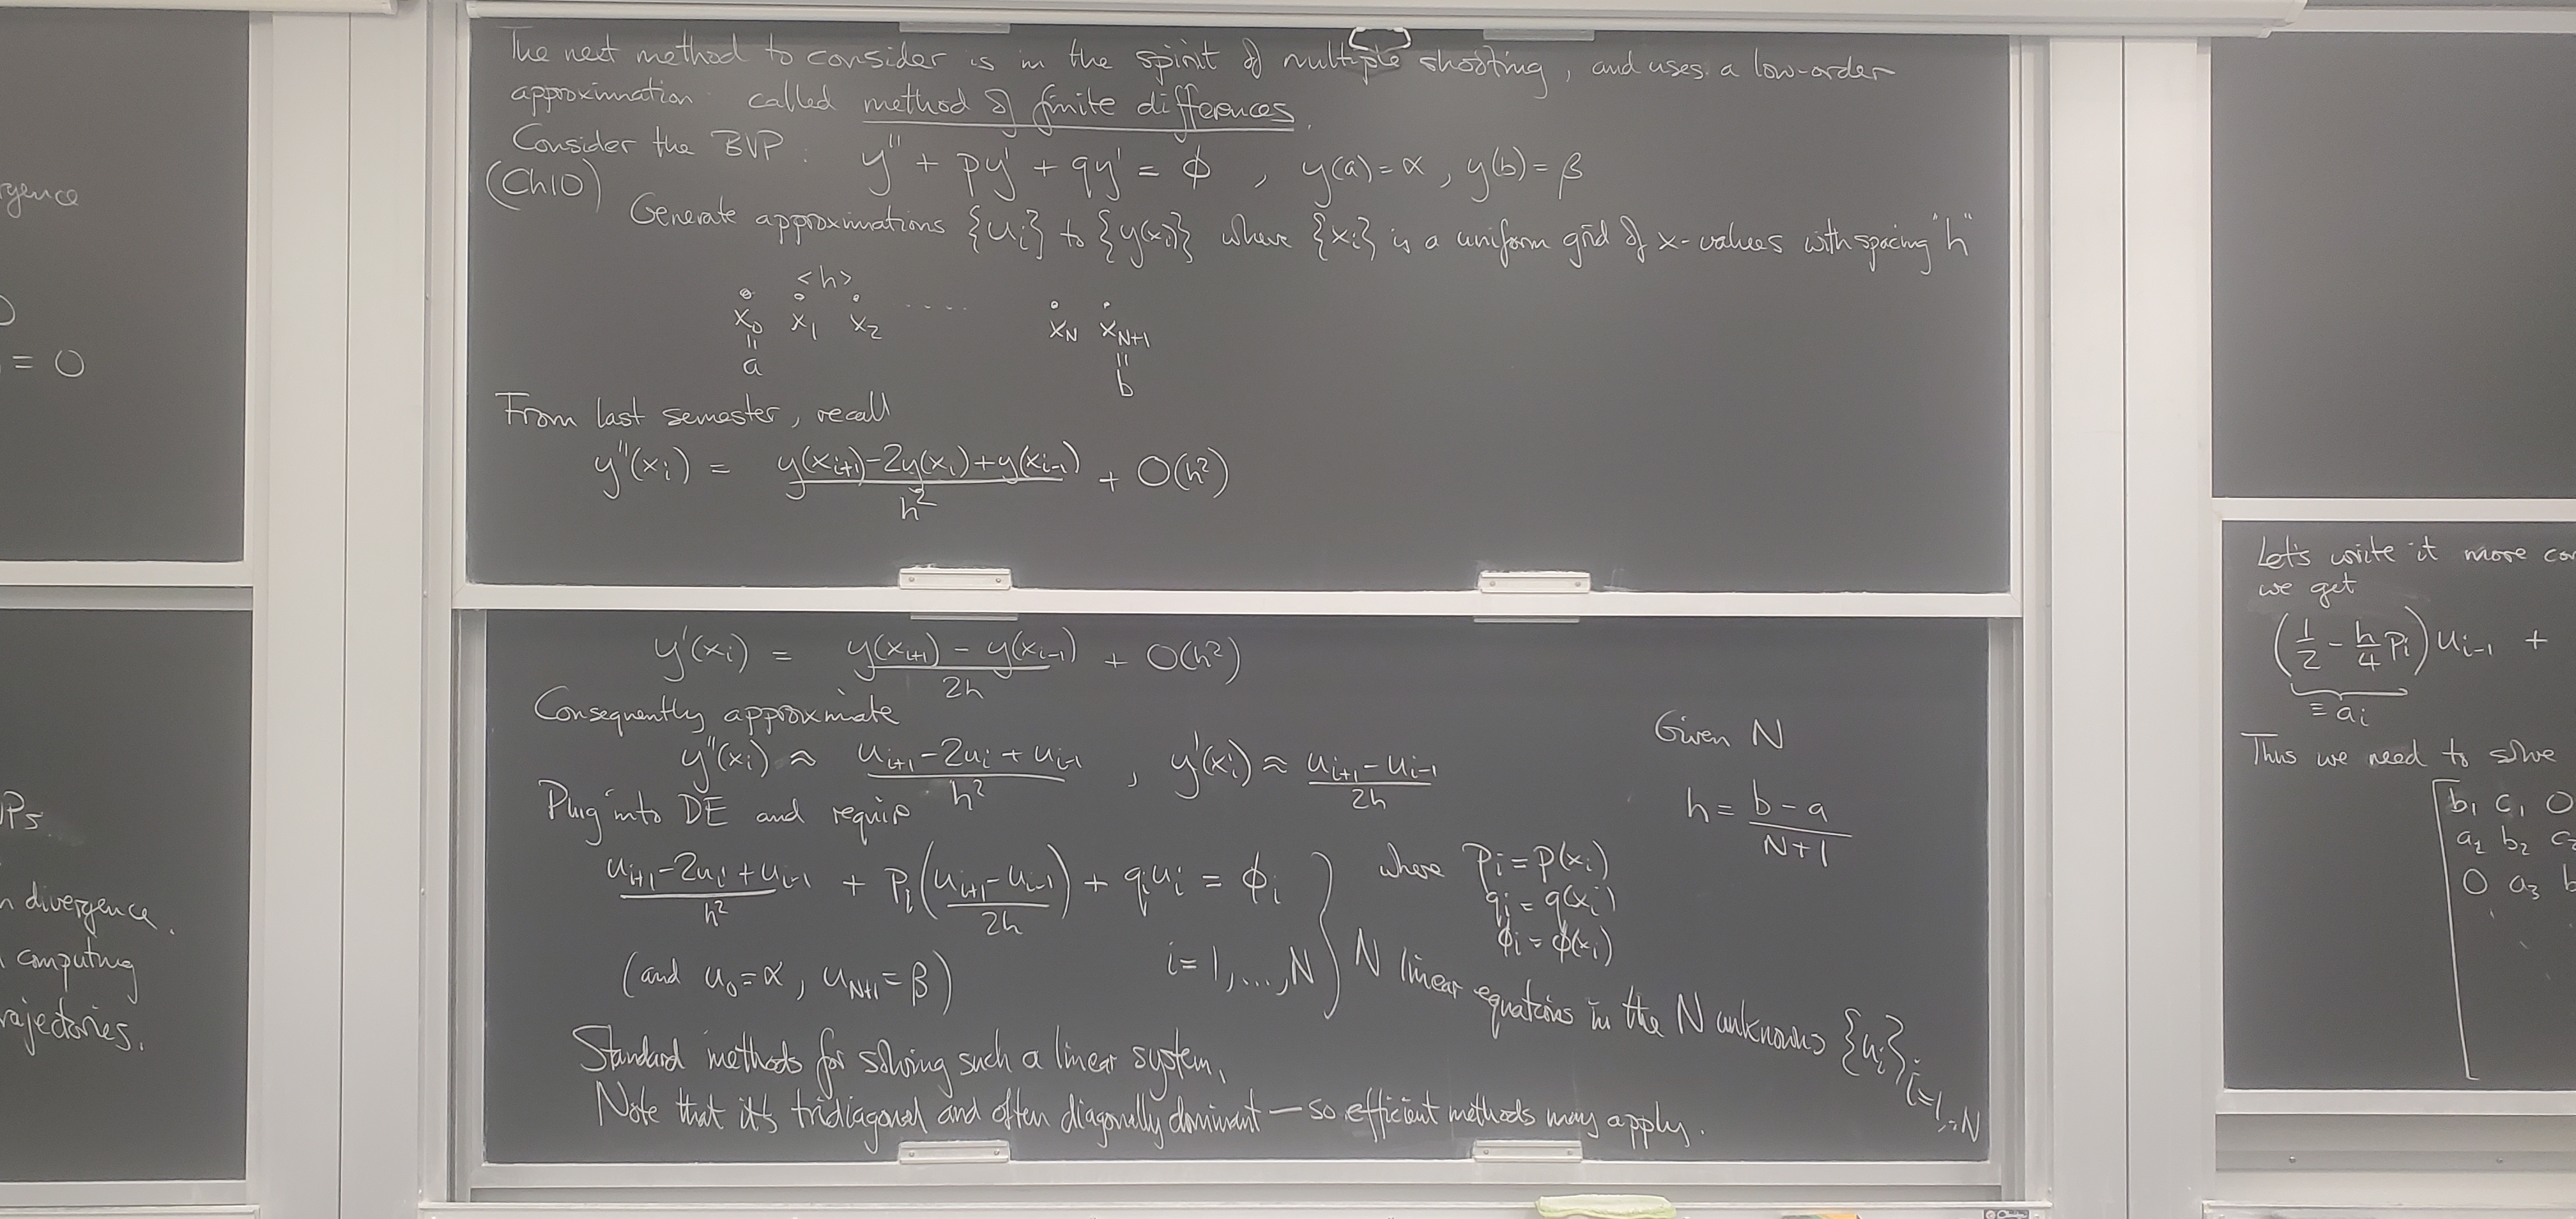 rgence
= 0
Ps
n divergence.
computing
rajectories.
The next method to consider is in the spirit of multiple shooting, and uses a low-order
approximation called method of finite differences.
Consider the BVP: y'' + py' + qy' = ϕ , y(a) = α , y(b) = β
(Ch10)
Generate approximations {u_i} to {y(x_i)} where {x_i} is a uniform grid of x-values with spacing "h"
<h>
x_0 x_1 x_2 .... x_N x_{N+1}
= =
a b
From last semester, recall
y''(x_i) = (y(x_{i+1}) - 2y(x_i) + y(x_{i-1})) / h^2 + O(h^2)
y'(x_i) = (y(x_{i+1}) - y(x_{i-1})) / 2h + O(h^2)
Consequently approximate
y''(x_i) ≈ (u_{i+1} - 2u_i + u_{i-1}) / h^2 , y'(x_i) ≈ (u_{i+1} - u_{i-1}) / 2h
Given N
h = (b - a) / (N+1)
Plug into DE and require
(u_{i+1} - 2u_i + u_{i-1}) / h^2 + p_i((u_{i+1} - u_{i-1}) / 2h) + q_i u_i = ϕ_i
(and u_0 = α , u_{N+1} = β) i = 1,...,N
where p_i = p(x_i)
q_i = q(x_i)
ϕ_i = ϕ(x_i)
N linear equations in the N unknowns {u_i}_{i=1,..,N}
Standard methods for solving such a linear system.
Note that it's tridiagonal and often diagonally dominant — so efficient methods may apply.
Let's write it more
we get
(1/2 - h/4 p_i) u_{i-1} +
≡ a_i
Thus we need to solve
b_1 c_1 0
a_2 b_2 c_2
0 a_3 b